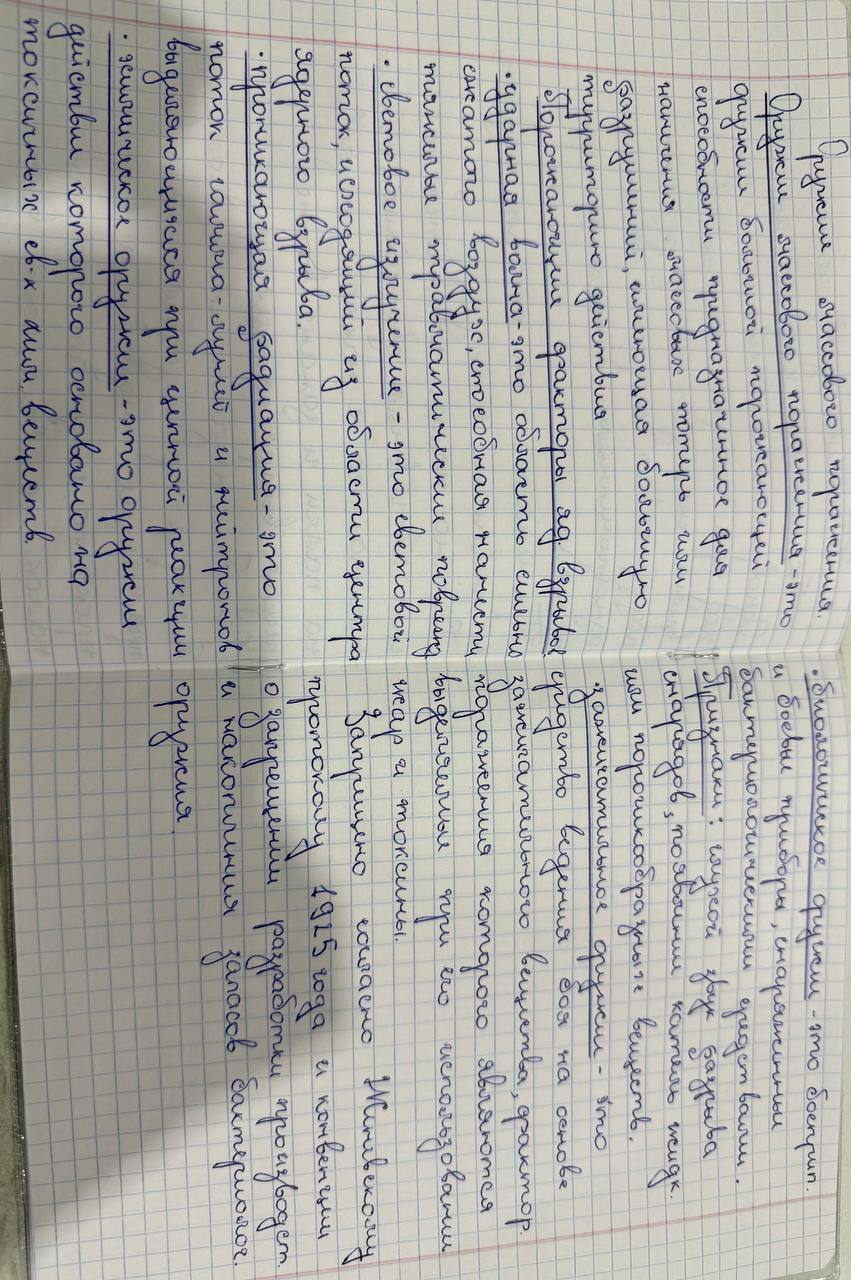 Оружие массового поражения.
Оружие массового поражения - это
оружие большой поражающей
способности предназначенное для
нанесения массовых потерь или
разрушений, имеющая большую
территорию действия
Поражающие факторы яд. взрыва:
• ударная волна - это область сильно
сжатого воздуха, способная нанести
тяжелые травматические поврежд
• световое излучение - это световой
поток, исходящий из области центра
ядерного взрыва.
• проникающая радиация - это
поток гамма-лучей и нейтронов
выделяющийся при цепной реакции
• химическое оружие - это оружие
действие которого основано на
токсичных св-х хим. веществ.
• биологическое оружие - это боеприп.
и боевые приборы, снаряженные
бактериологическими средствами.
Признаки: глухой звук разрыва
снарядов, появление капель жидк.
или порошкообразных веществ.
• зажигательное оружие - это
средство ведения боя на основе
зажигательного вещества, фактор.
поражения которого являются
выделяемые при его использовании
жар и токсины.
Запрещено согласно Женевскому
протоколу 1925 года и конвенции
о запрещении разработки производст.
и накопления запасов бактериолог.
оружия.